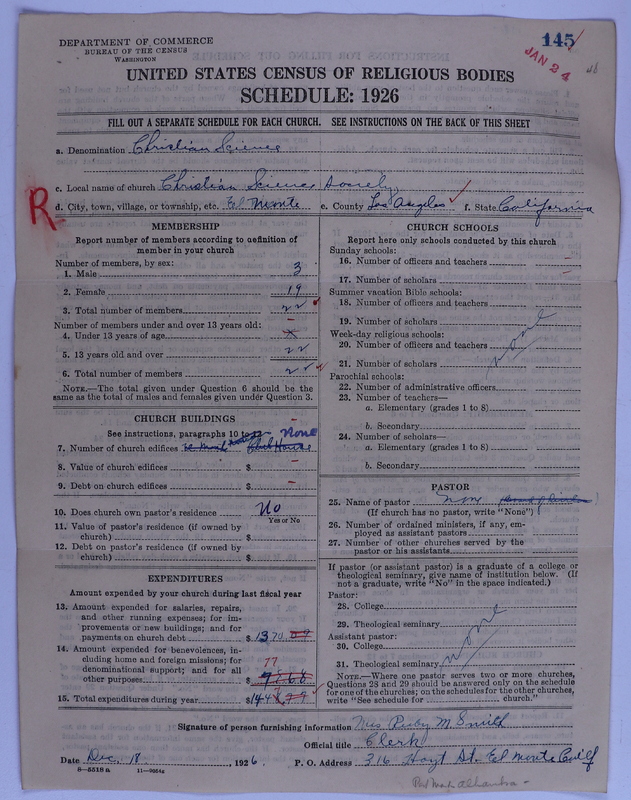 DEPARTMENT OF COMMERCE
BUREAU OF THE CENSUS
WASHINGTON
145
JAN 24
UNITED STATES CENSUS OF RELIGIOUS BODIES
SCHEDULE: 1926
FILL OUT A SEPARATE SCHEDULE FOR EACH CHURCH. SEE INSTRUCTIONS ON THE BACK OF THIS SHEET
a. Denomination Christian Science
c. Local name of church Christian Science Society
R
d. City, town, village, or township, etc. El Monte e. County Los Angeles f. State California
MEMBERSHIP
Report number of members according to definition of
member in your church
Number of members, by sex:
1. Male 3
2. Female 19
3. Total number of members 22
Number of members under and over 13 years old:
4. Under 13 years of age x
5. 13 years old and over 22
6. Total number of members 22
NOTE.—The total given under Question 6 should be
same as the total of males and females given under Question 3.
CHURCH BUILDINGS
See instructions, paragraphs 10 to 12 None
7. Number of church edifices
8. Value of church edifices $ –
9. Debt on church edifices $ –
10. Does church own pastor's residence No
Yes or No
11. Value of pastor's residence (if owned by
church) $
12. Debt on pastor's residence (if owned by
church) $
EXPENDITURES
Amount expended by your church during last fiscal year
13. Amount expended for salaries, repairs,
and other running expenses; for im-
provements or new buildings; and for
payments on church debt $ 1370
14. Amount expended for benevolences, in-
cluding home and foreign missions; for
denominational support; and for all
77
other purposes $
15. Total expenditures during year $ 1447
CHURCH SCHOOLS
Report here only schools conducted by this church
Sunday schools:
16. Number of officers and teachers –
17. Number of scholars –
Summer vacation Bible schools:
18. Number of officers and teachers
19. Number of scholars
Week-day religious schools:
20. Number of officers and teachers
none
21. Number of scholars
Parochial schools:
22. Number of administrative officers
23. Number of teachers—
a. Elementary (grades 1 to 8)
b. Secondary
24. Number of scholars—
a. Elementary (grades 1 to 8)
b. Secondary
PASTOR
25. Name of pastor none
(If church has no pastor, write "None")
26. Number of ordained ministers, if any, em-
ployed as assistant pastors
27. Number of other churches served by the
pastor or his assistants
If pastor (or assistant pastor) is a graduate of a college or
theological seminary, give name of institution below. (If
not a graduate, write "No" in the space indicated.)
Pastor:
28. College
29. Theological seminary
none
Assistant pastor:
30. College
31. Theological seminary
NOTE.—Where one pastor serves two or more churches,
Questions 28 and 29 should be answered only on the schedule
for one of the churches; on the schedules for the other churches,
write "See schedule for church."
Signature of person furnishing information M. Smith
Official title Clerk
Date Dec. 18, 1926. P. O. Address 316 Hoyt St. El Monte Calif
8—5518a 11—9054a
Post Mark Alhambra -